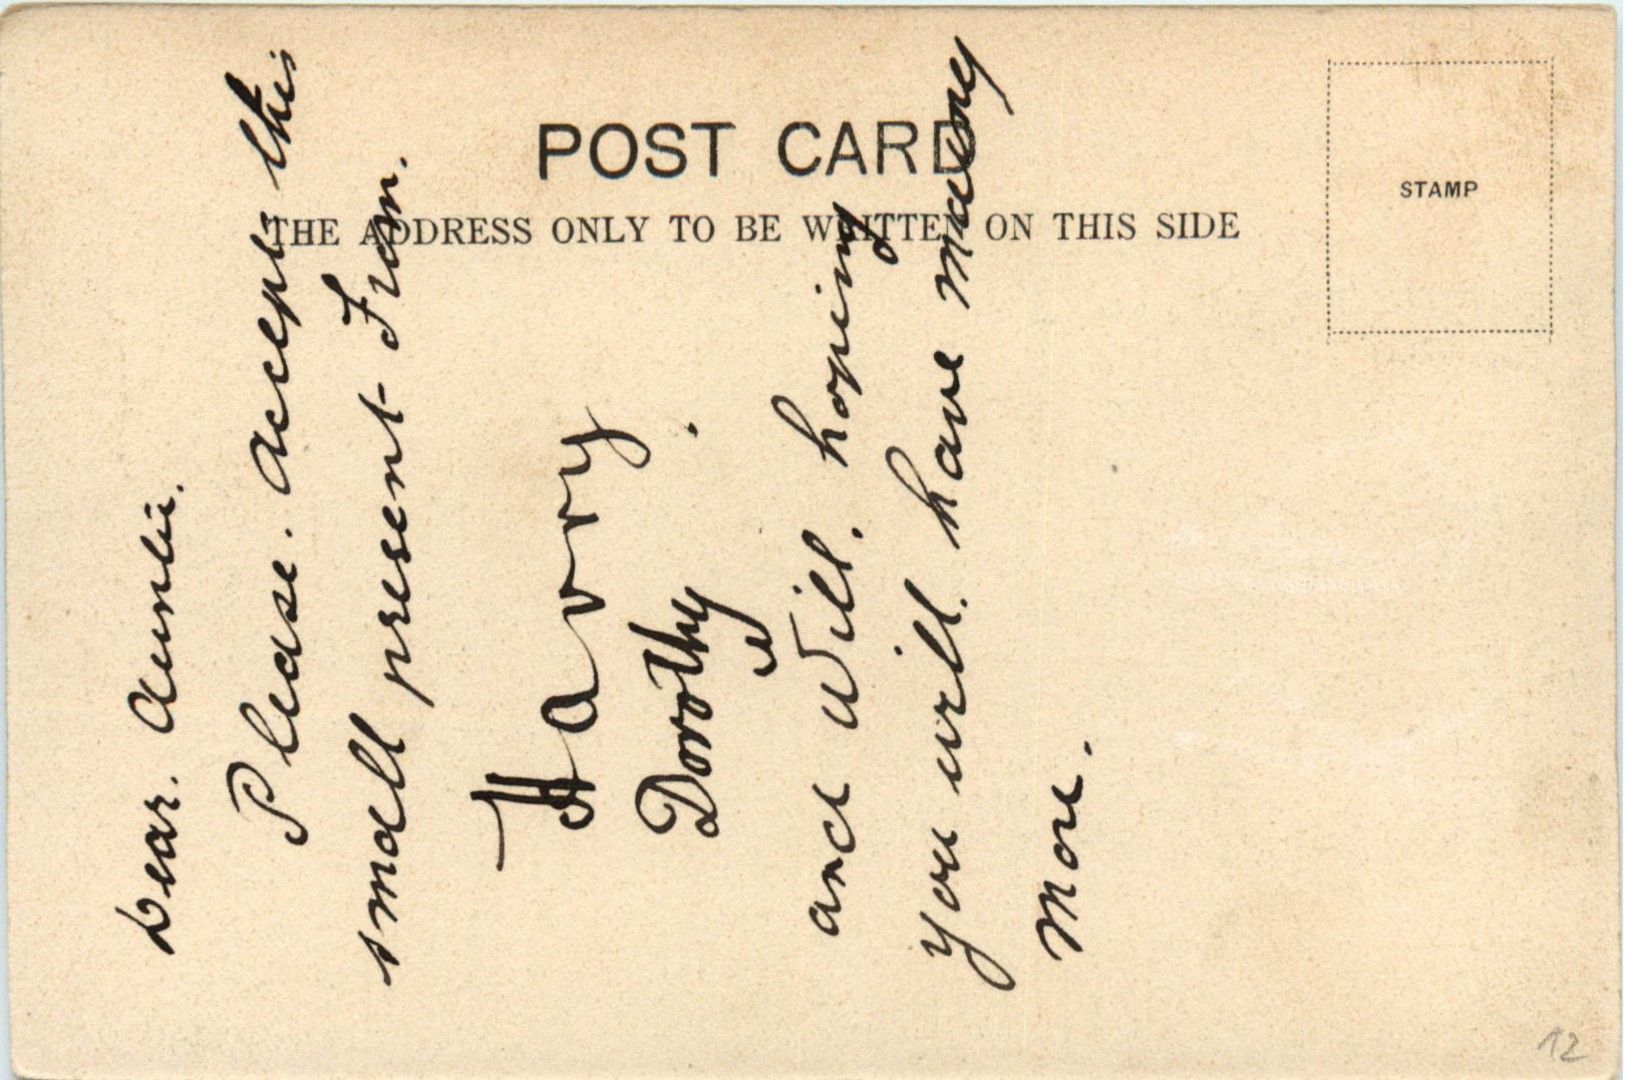 POST CARD
THE ADDRESS ONLY TO BE WRITTEN ON THIS SIDE
STAMP
Dear. Auntie.
Please. accept this
small present From.
Harry
Dorothy.
and Will. hoping
you will. have many
More.
12